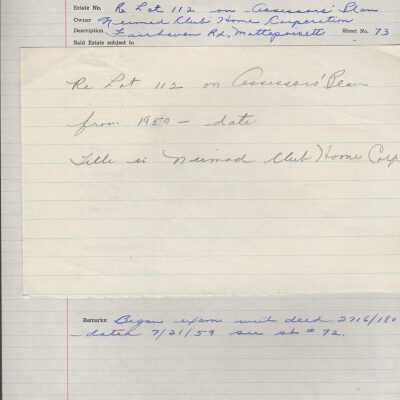 Estate No. Re Lot 112 on Assessors' Plan
Owner Nimrod Club Home Corporation
Description Fairhaven Rd, Mattapoisett Sheet No. 73
Said Estate subject to
Re Lot 112 on Assessors' Plan
from 1950 – date
Title in Nimrod Club Home Corp
Remarks: Began exam with deed 2716/180
– dated 7/21/59 see sh # 72.